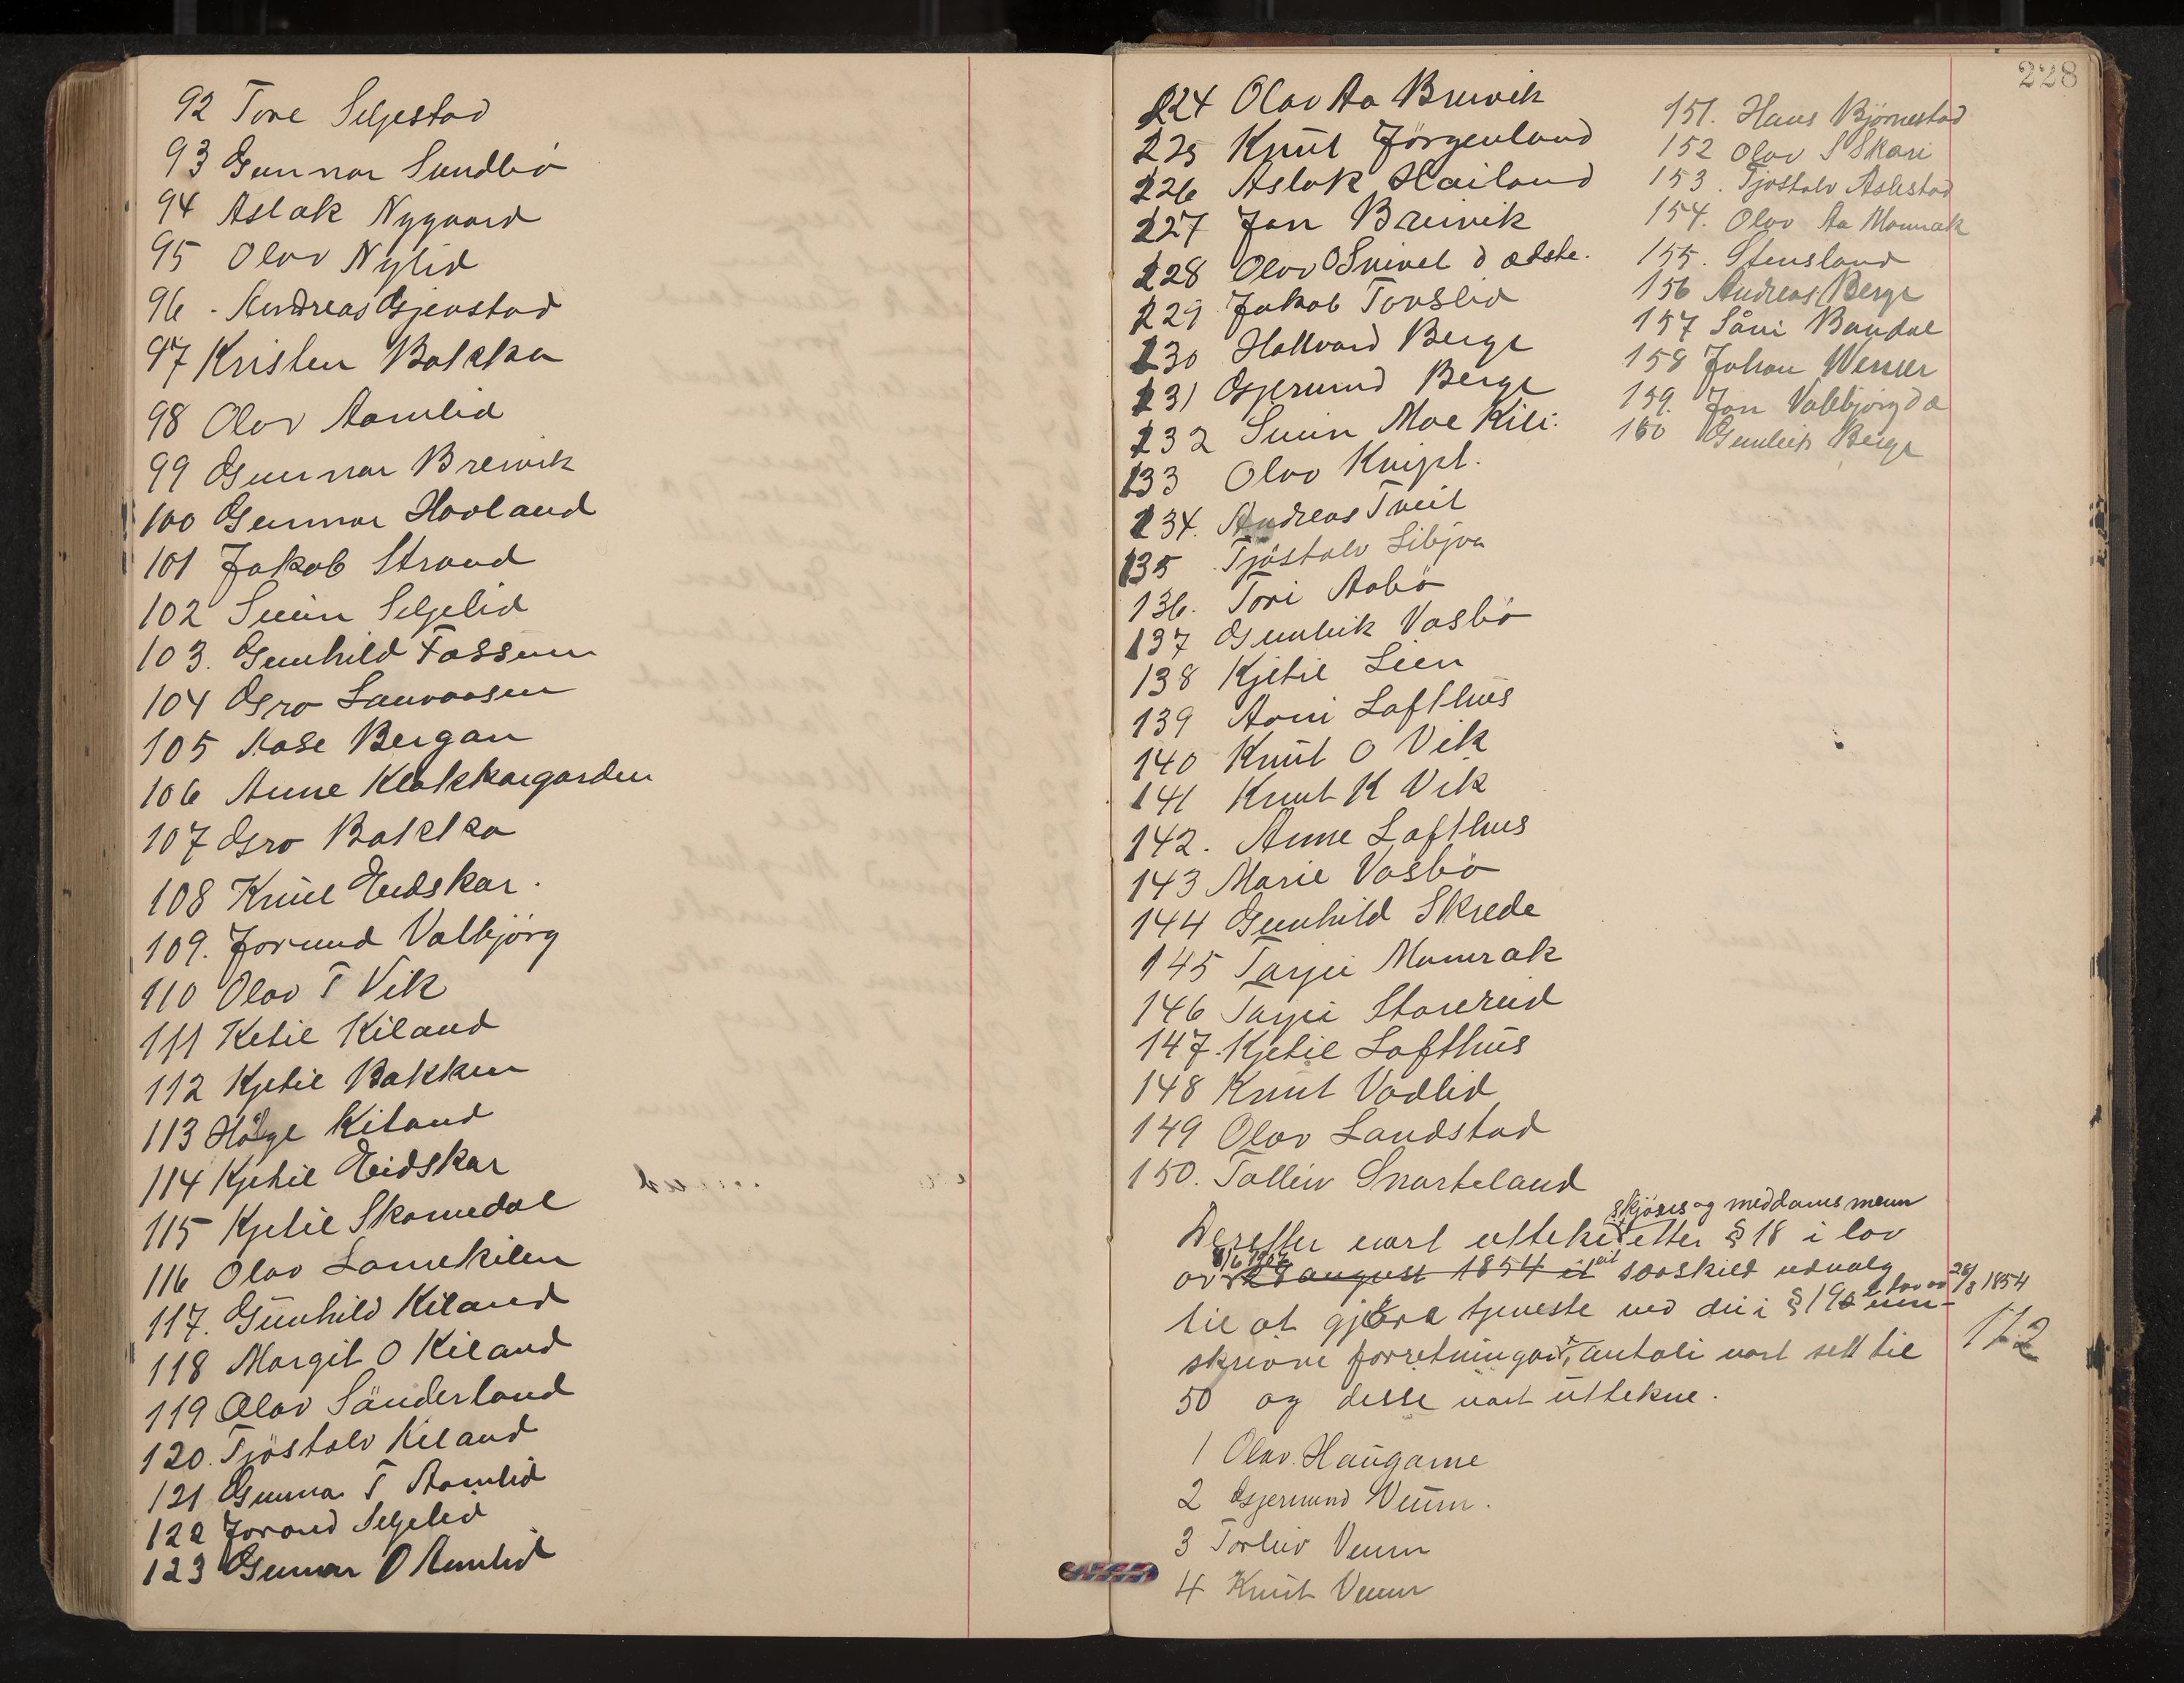 92 Tore Seljestad
93 Gunnar Sundbö
94 Aslak Nygaard
95 Olav Nylid
96 Andreas Gjenstad
97 Kristen Bakkka
98 Olav Aamlid
99 Gunnar Breivik
100 Gunnar Hovland
101 Jakob Strand
102 Svein Seljelid
103. Gunhild Fossum
104 Gro Lauvaasen
105 Aase Bergan
106 Anne Klokkargarden
107 Gro Bakkka
108 Knut Eidskar.
109. Jorund Valbjörg
110 Olav T Vik
111 Ketil Kiland
112 Kjetil Bakken
113 Helge Kiland
114 Kjetil Eidskar
115 Kjetil Skomedal
116 Olav Lonekilen
117. Gunhild Kiland
118 Margit O Kiland
119 Olav Sånderland
120. Tjöstolv Kiland
121 Gunnar T Aamlid
122 Jorand Seljelid
123 Gunnar O Aamlid
228
124 Olav Aa Breivik
125 Knut Jörgenland
126 Aslak Hailand
127 Jon Breivik
128 Olav O Sneivet d ældste.
129 Jakob Tovslid
130 Hallvard Berge
131 Gjermund Berge
132 Svein Moe Kili.
133 Olav Knipl.
134. Andreas Tveit
135 Tjöstolv Libjön
136. Tori Aabö
137 Gunleik Vasbö
138 Kjetil Lien
139 Aani Lofthus
140 Knut O Vik
141 Knut K Vik
142. Anne Lofthus
143 Marie Vasbö
144 Gunhild Skrede
145 Tarjei Momrak
146 Tarjei Storerud
147. Kjetil Lofthus
148 Knut Vadlid
149 Olav Landstad
150. Talleiv Snarteland
151. Hans Bjørnestad
152 Olav S Skari
153. Tjostolv Askestad
154. Olav Aa Momrak
155. Stensland
156 Andreas Berge
157 Såni Bandal
158 Johan Wenner
159. Jon Valebjörg d æ
160 Gunleik Berge
skjöns og meddomsmenn
Deretter vart utteki etter § 18 i lov
av 28 august 1854 eit særskild udvalg
til at gjera tjeneste ved dei i § 19 i lov av 28/8 1854 um-
skrevne forretningar, antali vart sett til
112
50 og desse vart uttekne.
1 Olav Haugarne
2 Gjermund Veum.
3 Torleiv Veum
4 Knut Veum